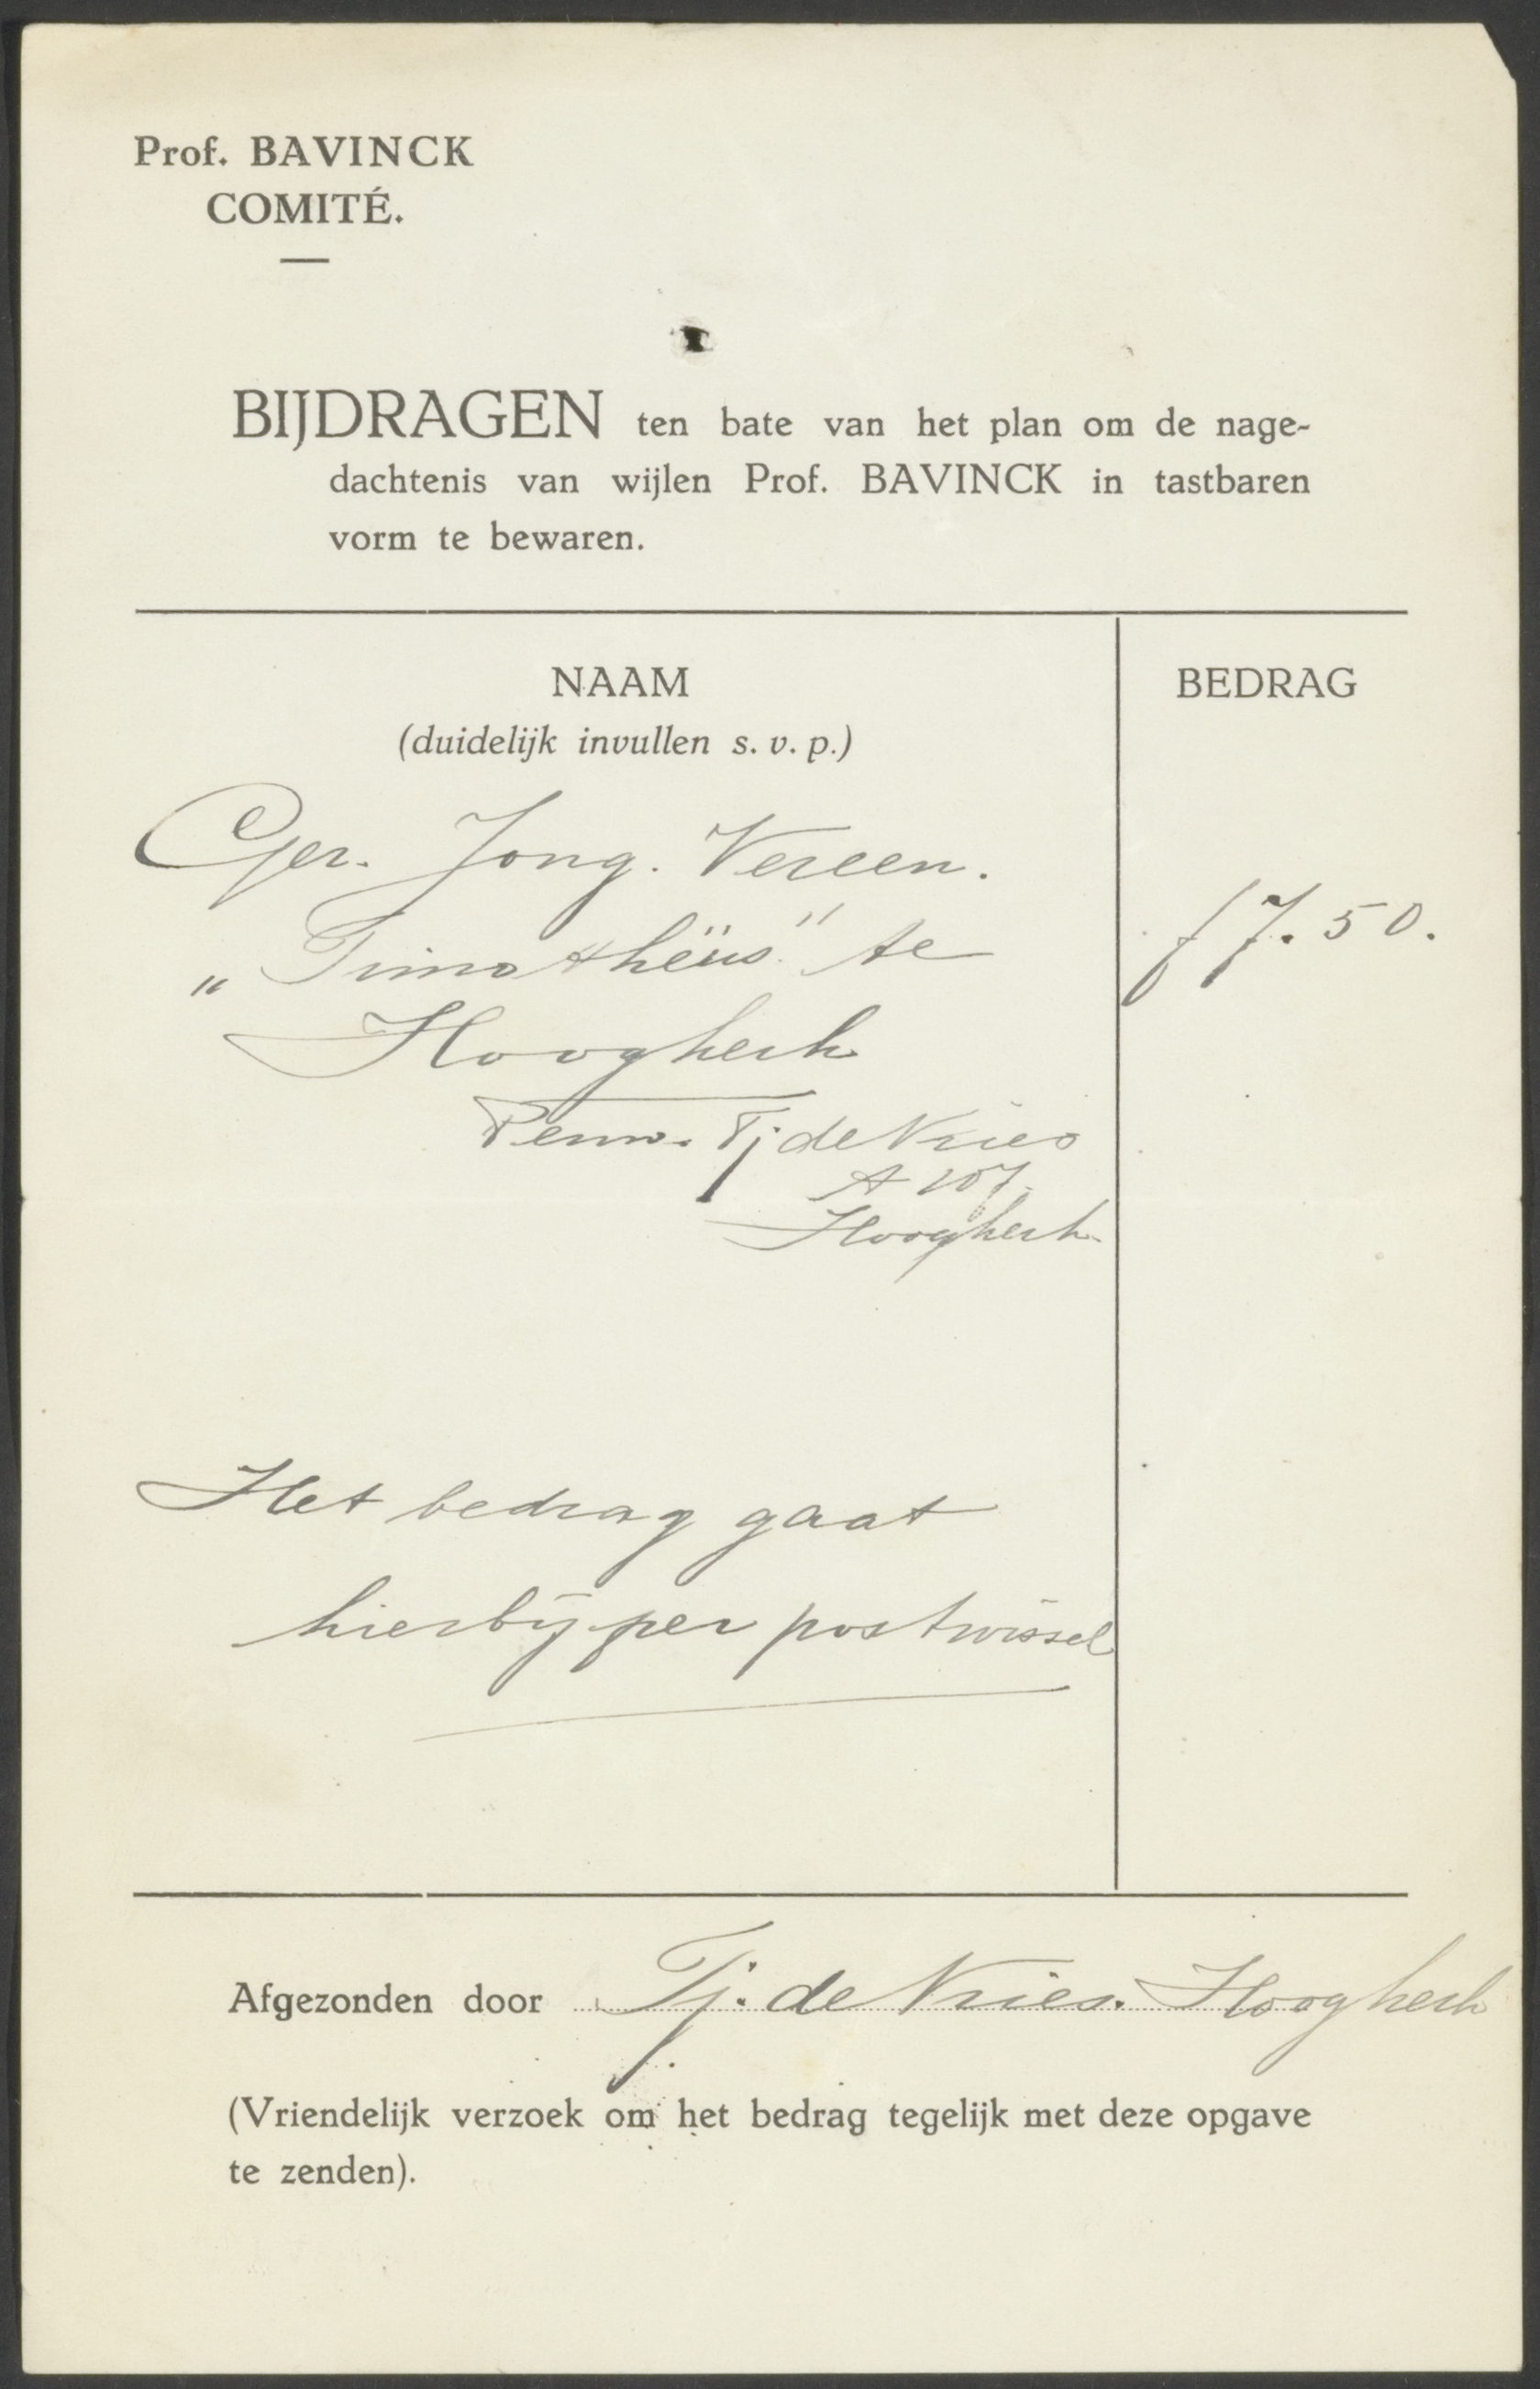 Prof. BAVINCK
COMITÉ.
BIJDRAGEN ten bate van het plan om de nage-
dachtenis van wijlen Prof. BAVINCK in tastbaren
vorm te bewaren.
NAAM
BEDRAG
(duidelijk invullen s. v. p.)
Ger. Jong. Vereen.
„Timotheüs" te
f 7.50.
Hoogkerk
Penn. Tj de Vries
A 107.
Hoogkerk.
Het bedrag gaat
hierbij per postwissel
Afgezonden door Tj. de Vries. Hoogkerk
(Vriendelijk verzoek om het bedrag tegelijk met deze opgave
te zenden).